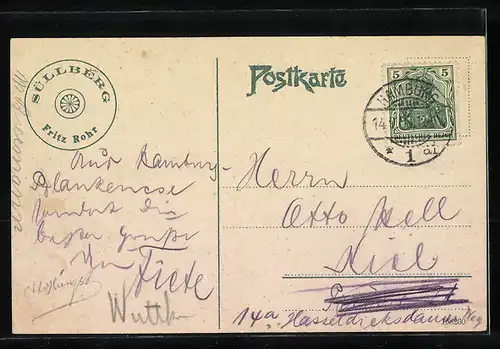 SÜLLBERG
Fritz Rohr
Postkarte
5 5
HAMBURG
14.
* 1
Aus Hamburg-
Blankenese
sendet die
besten Grüße
Ihr Fiete
Herrn
Otto Kell
Kiel
14a Hasseldieksdammer Weg